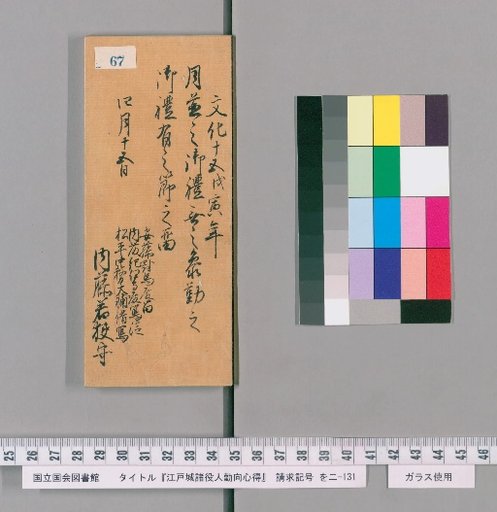 67
文化十五戊寅年
月並之御禮無之象勤之
御禮有之節之留
四月十五日
安藤対馬守殿留
内藤紀伊守殿写済
松平中務大輔借写
内藤若狭守
25 26 27 28 29 30 31 32 33 34 35 36 37 38 39 40 41 42 43 44 45 46
国立国会図書館 タイトル『江戸城諸役人勤向心得』 請求記号 を二-131
ガラス使用